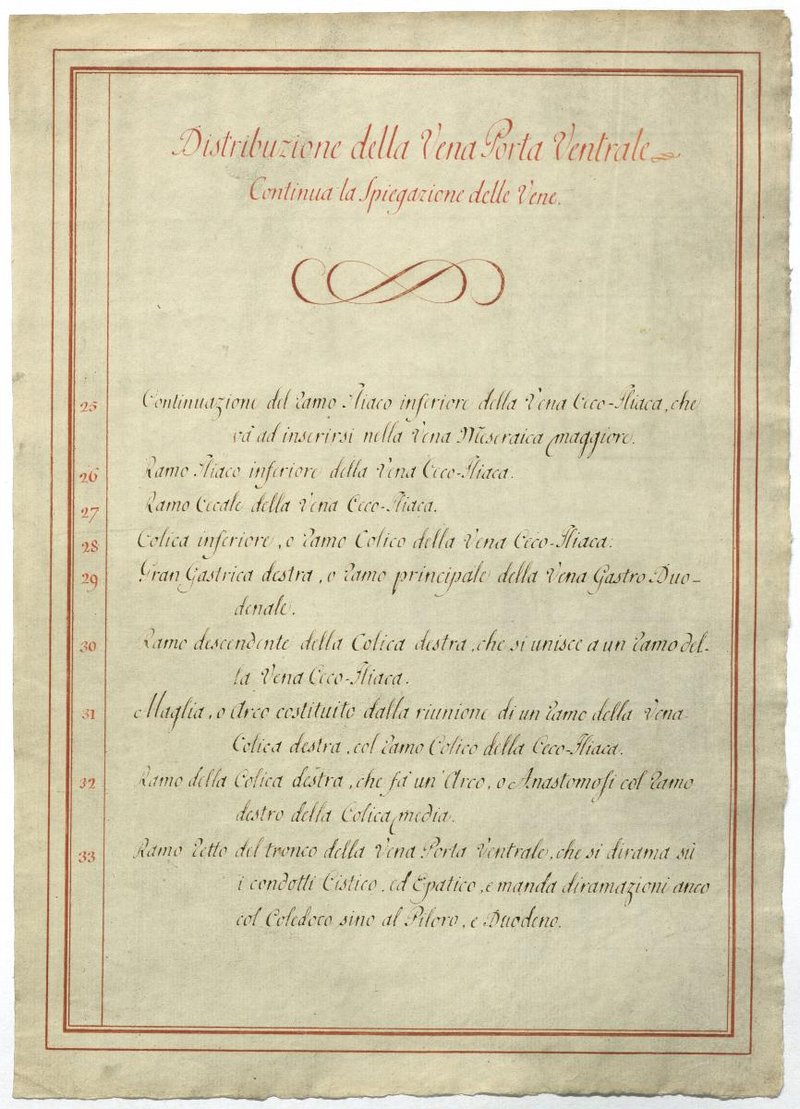 Distribuzione della Vena Porta Ventrale
Continua la Spiegazione delle Vene.
25 Continuazione del Ramo Iliaco inferiore della Vena Ceco-Iliaca, che
và ad inserirsi nella Vena Meseraica maggiore.
26 Ramo Iliaco inferiore della Vena Ceco-Iliaca.
27 Ramo Cecale della Vena Ceco-Iliaca.
28 Colica inferiore, o Ramo Colico della Vena Ceco-Iliaca.
29 Gran Gastrica destra, o Ramo principale della Vena Gastro Duo-
denale.
30 Ramo descendente della Colica destra, che si unisce a un Ramo del-
la Vena Ceco-Iliaca.
31 Maglia, o Arco costituito dalla riunione di un Ramo della Vena
Colica destra, col Ramo Colico della Ceco-Iliaca.
32 Ramo della Colica destra, che fà un' Arco, o Anastomosi col Ramo
destro della Colica media.
33 Ramo Retto del tronco della Vena Porta Ventrale, che si dirama sù
i condotti Cistico, ed Epatico, e manda diramazioni anco
col Coledoco sino al Piloro, e Duodeno.